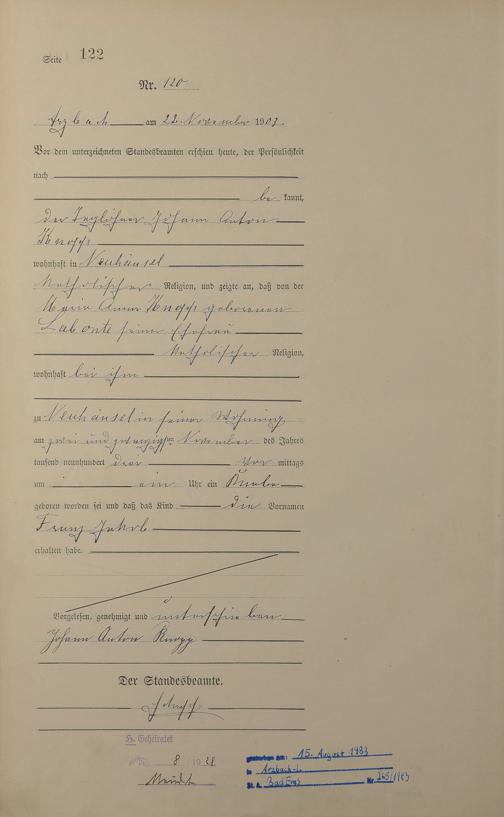 Seite 122
Nr. 120
Arzbach am 22. November 1903.
Vor dem unterzeichneten Standesbeamten erschien heute, der Persönlichkeit
nach
be kannt,
der Taglöhner Johann Anton
Knopp
wohnhaft in Neuhäusel
katholischer Religion, und zeigte an, daß von der
Maria Anna Knopp geborenen
Labonte seiner Ehefrau
katholischer Religion,
wohnhaft bei ihm
zu Neuhäusel in seiner Wohnung
am zwei und zwanzigsten November des Jahres
tausend neunhundert drei Vor mittags
um ein Uhr ein Knabe
geboren worden sei und daß das Kind die Vornamen
Franz Jakob
erhalten habe.
Vorgelesen, genehmigt und unterschrieben
Johann Anton Knopp
Der Standesbeamte.
H. Geheiratet
8
gestorben am: 15. August 1983
in Arzbach
St. A. Bad Ems Nr. 265/1983